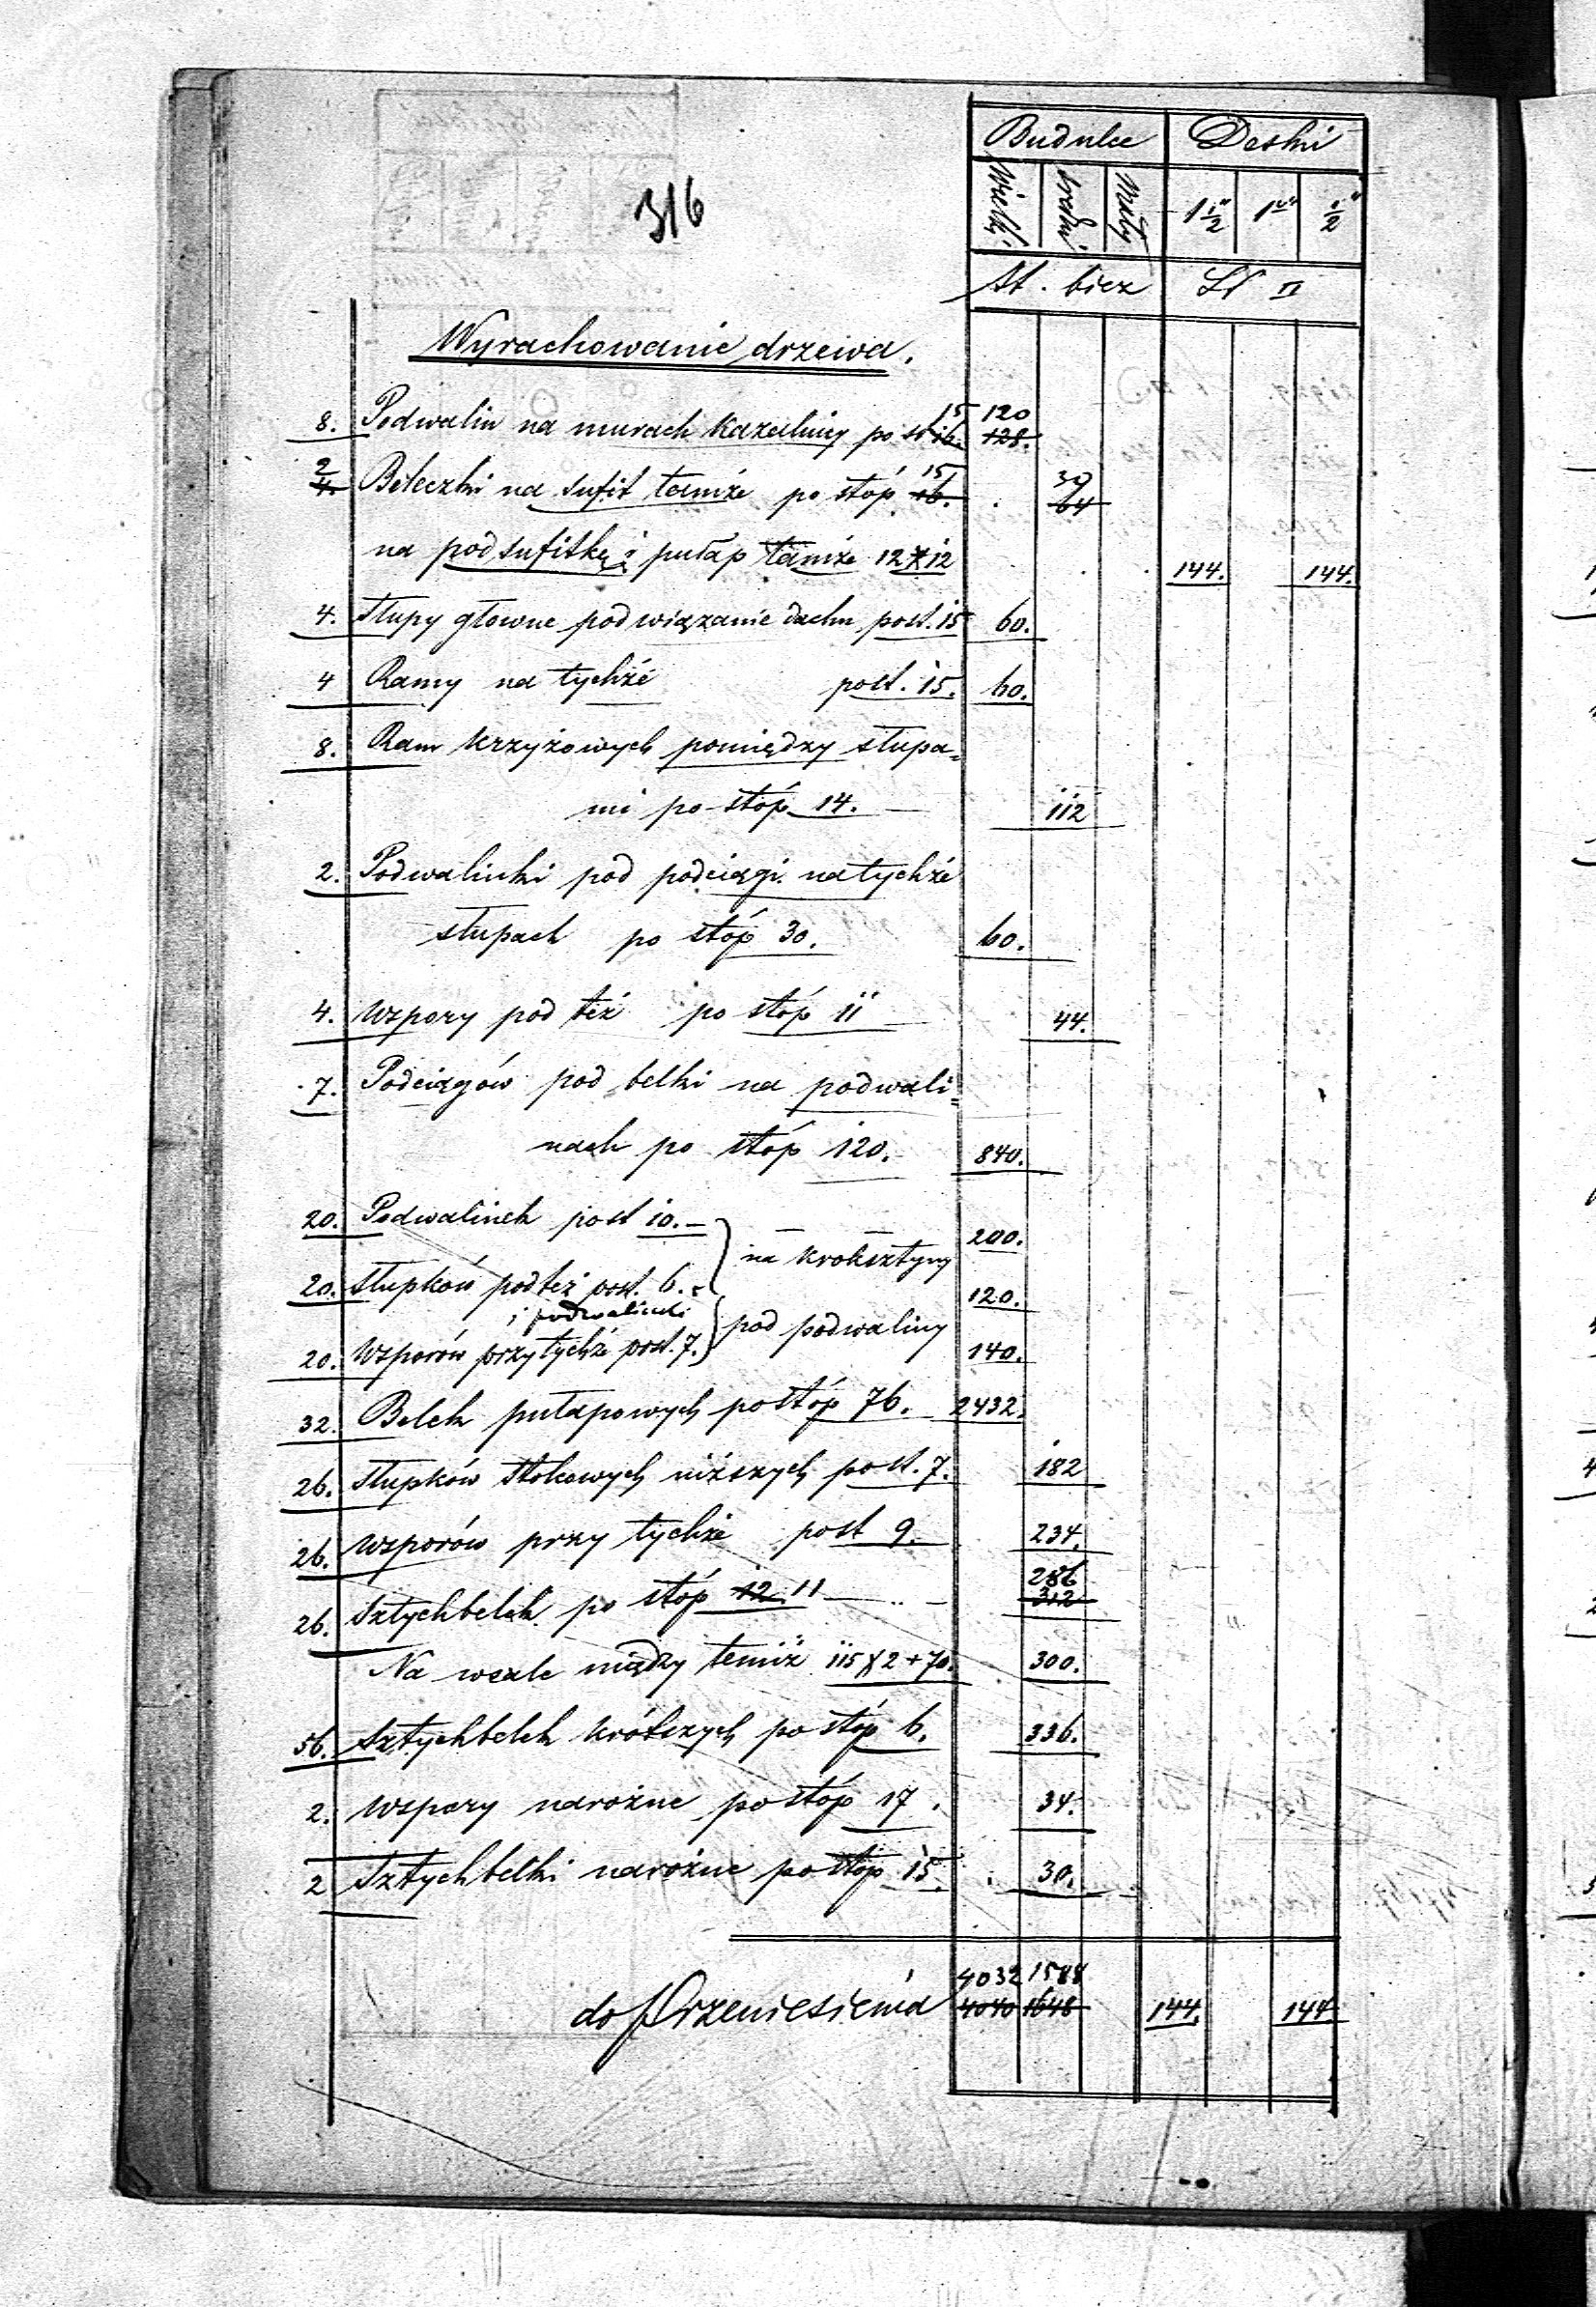 316
Budulec Deski
Wielki średni Mały 1½" 1" ½"
St. bież St □
Wyrachowanie drzewa.
8. Podwalin na murach kazalnicy po st 16. 15 128. 120
4. 2 Beleczki na sufit tamże po stóp 16. 15 64 30
na podsufitkę i pułap tamże 12 × 12 144. 144.
4. Słupy głowne pod wiązanie dachu po st. 15 60.
4 Ramy na tychże po st. 15. 60.
8. Ram krzyżowych pomiędzy słupa=
mi po stóp 14. 112
2. Podwalinki pod podciągi na tychże
słupach po stóp 30. 60.
4. Wspory pod też po stóp 11 44.
7. Podciągów pod belki na podwali=
nach po stóp 120. 840.
20. Podwalinek po st 10. — 200.
na kroksztyny
20. Słupków pod też po st. 6. 120.
i podwalinki
pod podwaliny
20. Wsporów przy tychże po st. 7. 140.
32. Belek pułapowych po stóp 76. 2432.
26. Słupków stolcowych niższych po st. 7. 182
26. Wsporów przy tychże po st 9. 234.
26. Sztychbelek po stóp 12 11 312 286
Na między temiż 115 × 2 + 70. 300.
56. Sztychbelek krótszych po stóp 6. 336.
2. Wspory narożne po stóp 17. 34.
2 Sztychbelki narożne po stóp 15. 30.
4032 1588
do przeniesienia 4040 1648 144. 144